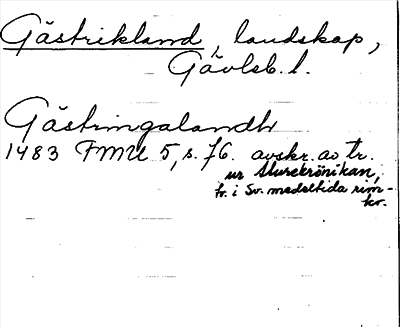 Gästrikland, landskap,
Gävleb. l.
Gästringalandh
1483 FMU 5, s. 76. avskr. av tr.
ur Sturekrönikan,
tr. i Sv. medeltida rim-
kr.